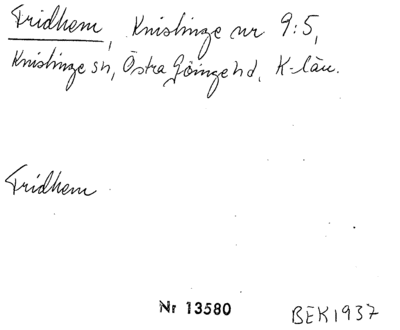 Fridhem, Knislinge nr 9:5,
Knislinge sn, Östra Göinge hd, K-län.
Fridhem
Nr 13580
BEK1937